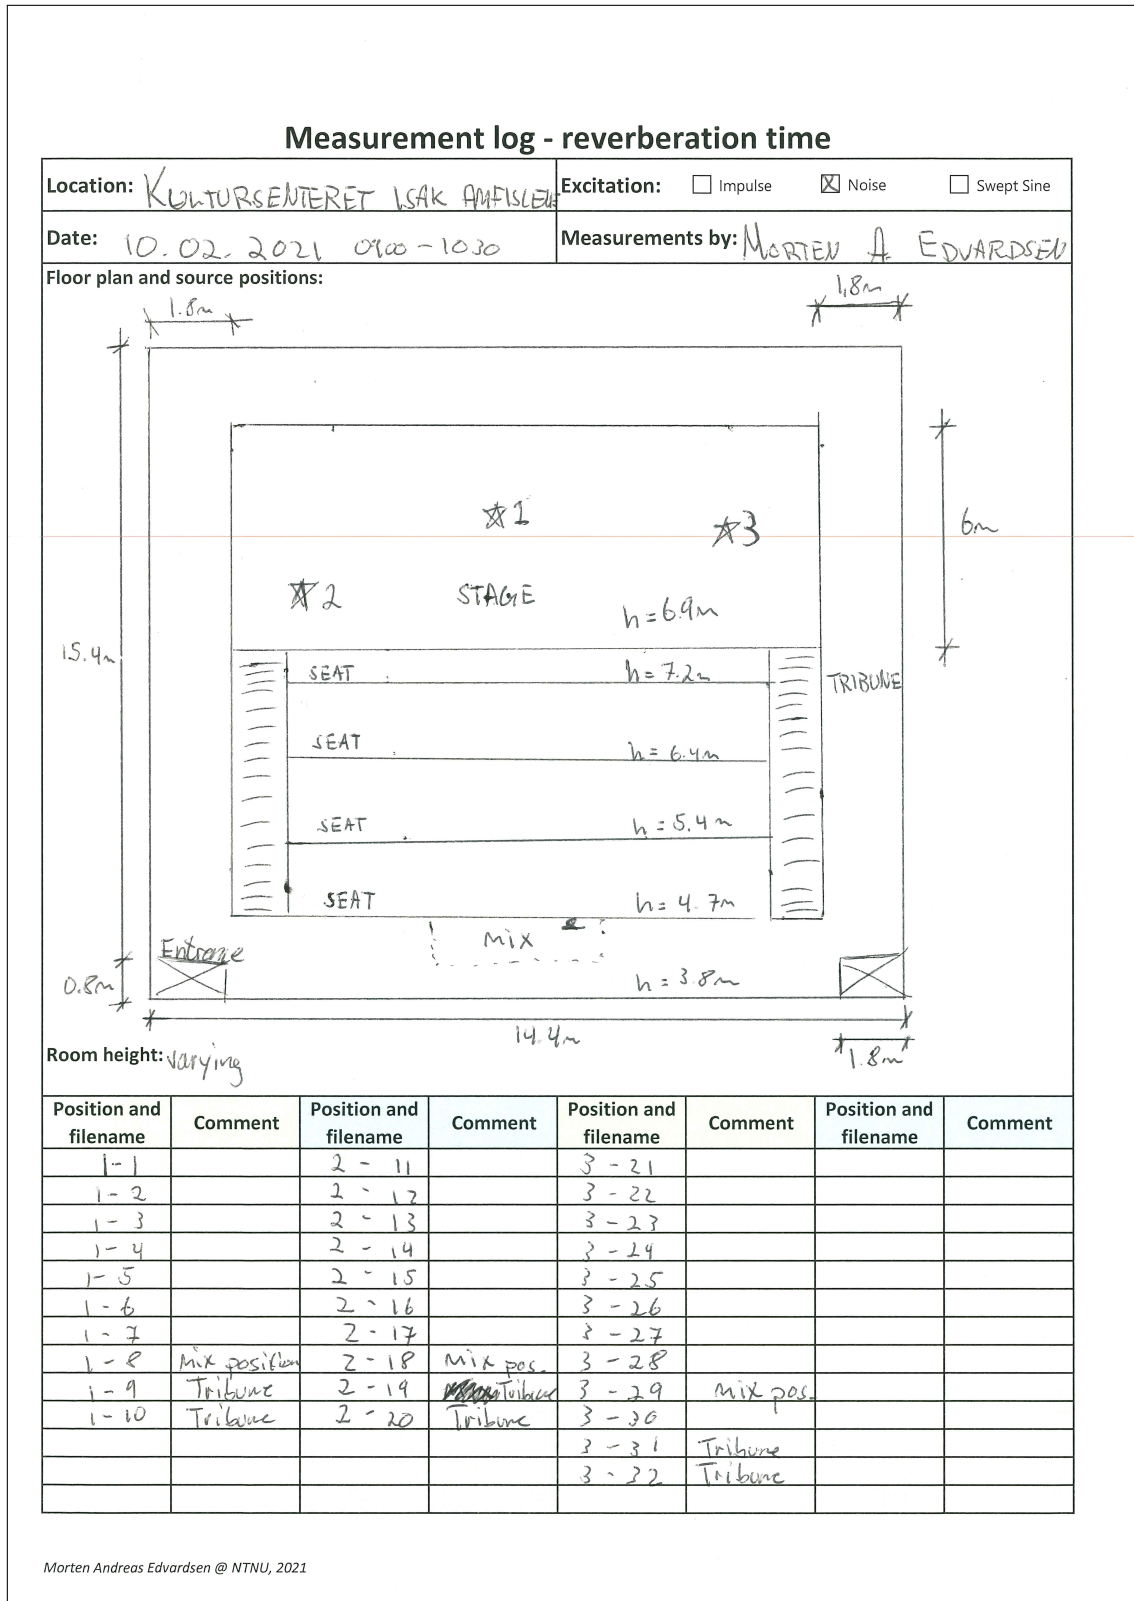 Measurement log - reverberation time
Location: KULTURSENTERET ISAK AMFISCENE Excitation: ☐ Impulse ☒ Noise ☐ Swept Sine
Date: 10.02.2021 0900-1030 Measurements by: MORTEN A. EDVARDSEN
Floor plan and source positions:
1.8m 1,8m
1 3 6m
2 STAGE h=6.9m
15.4m
SEAT h=7.2m TRIBUNE
SEAT h=6.4m
SEAT h=5.4m
SEAT h=4.7m
Entrance MIX
0.8m h=3.8m
14.4m
Room height: varying 1.8m
Position and filename Comment Position and filename Comment Position and filename Comment Position and filename Comment
1-1 2-11 3-21
1-2 2-12 3-22
1-3 2-13 3-23
1-4 2-14 3-24
1-5 2-15 3-25
1-6 2-16 3-26
1-7 2-17 3-27
1-8 Mix position 2-18 Mix pos. 3-28
1-9 Tribune 2-19 Tribune 3-29 Mix pos.
1-10 Tribune 2-20 Tribune 3-30
3-31 Tribune
3-32 Tribune
Morten Andreas Edvardsen @ NTNU, 2021